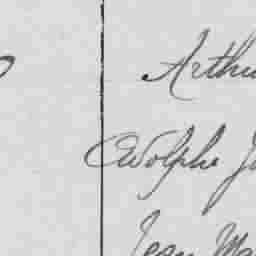 Arthu
Adolphe J
Jean Ma